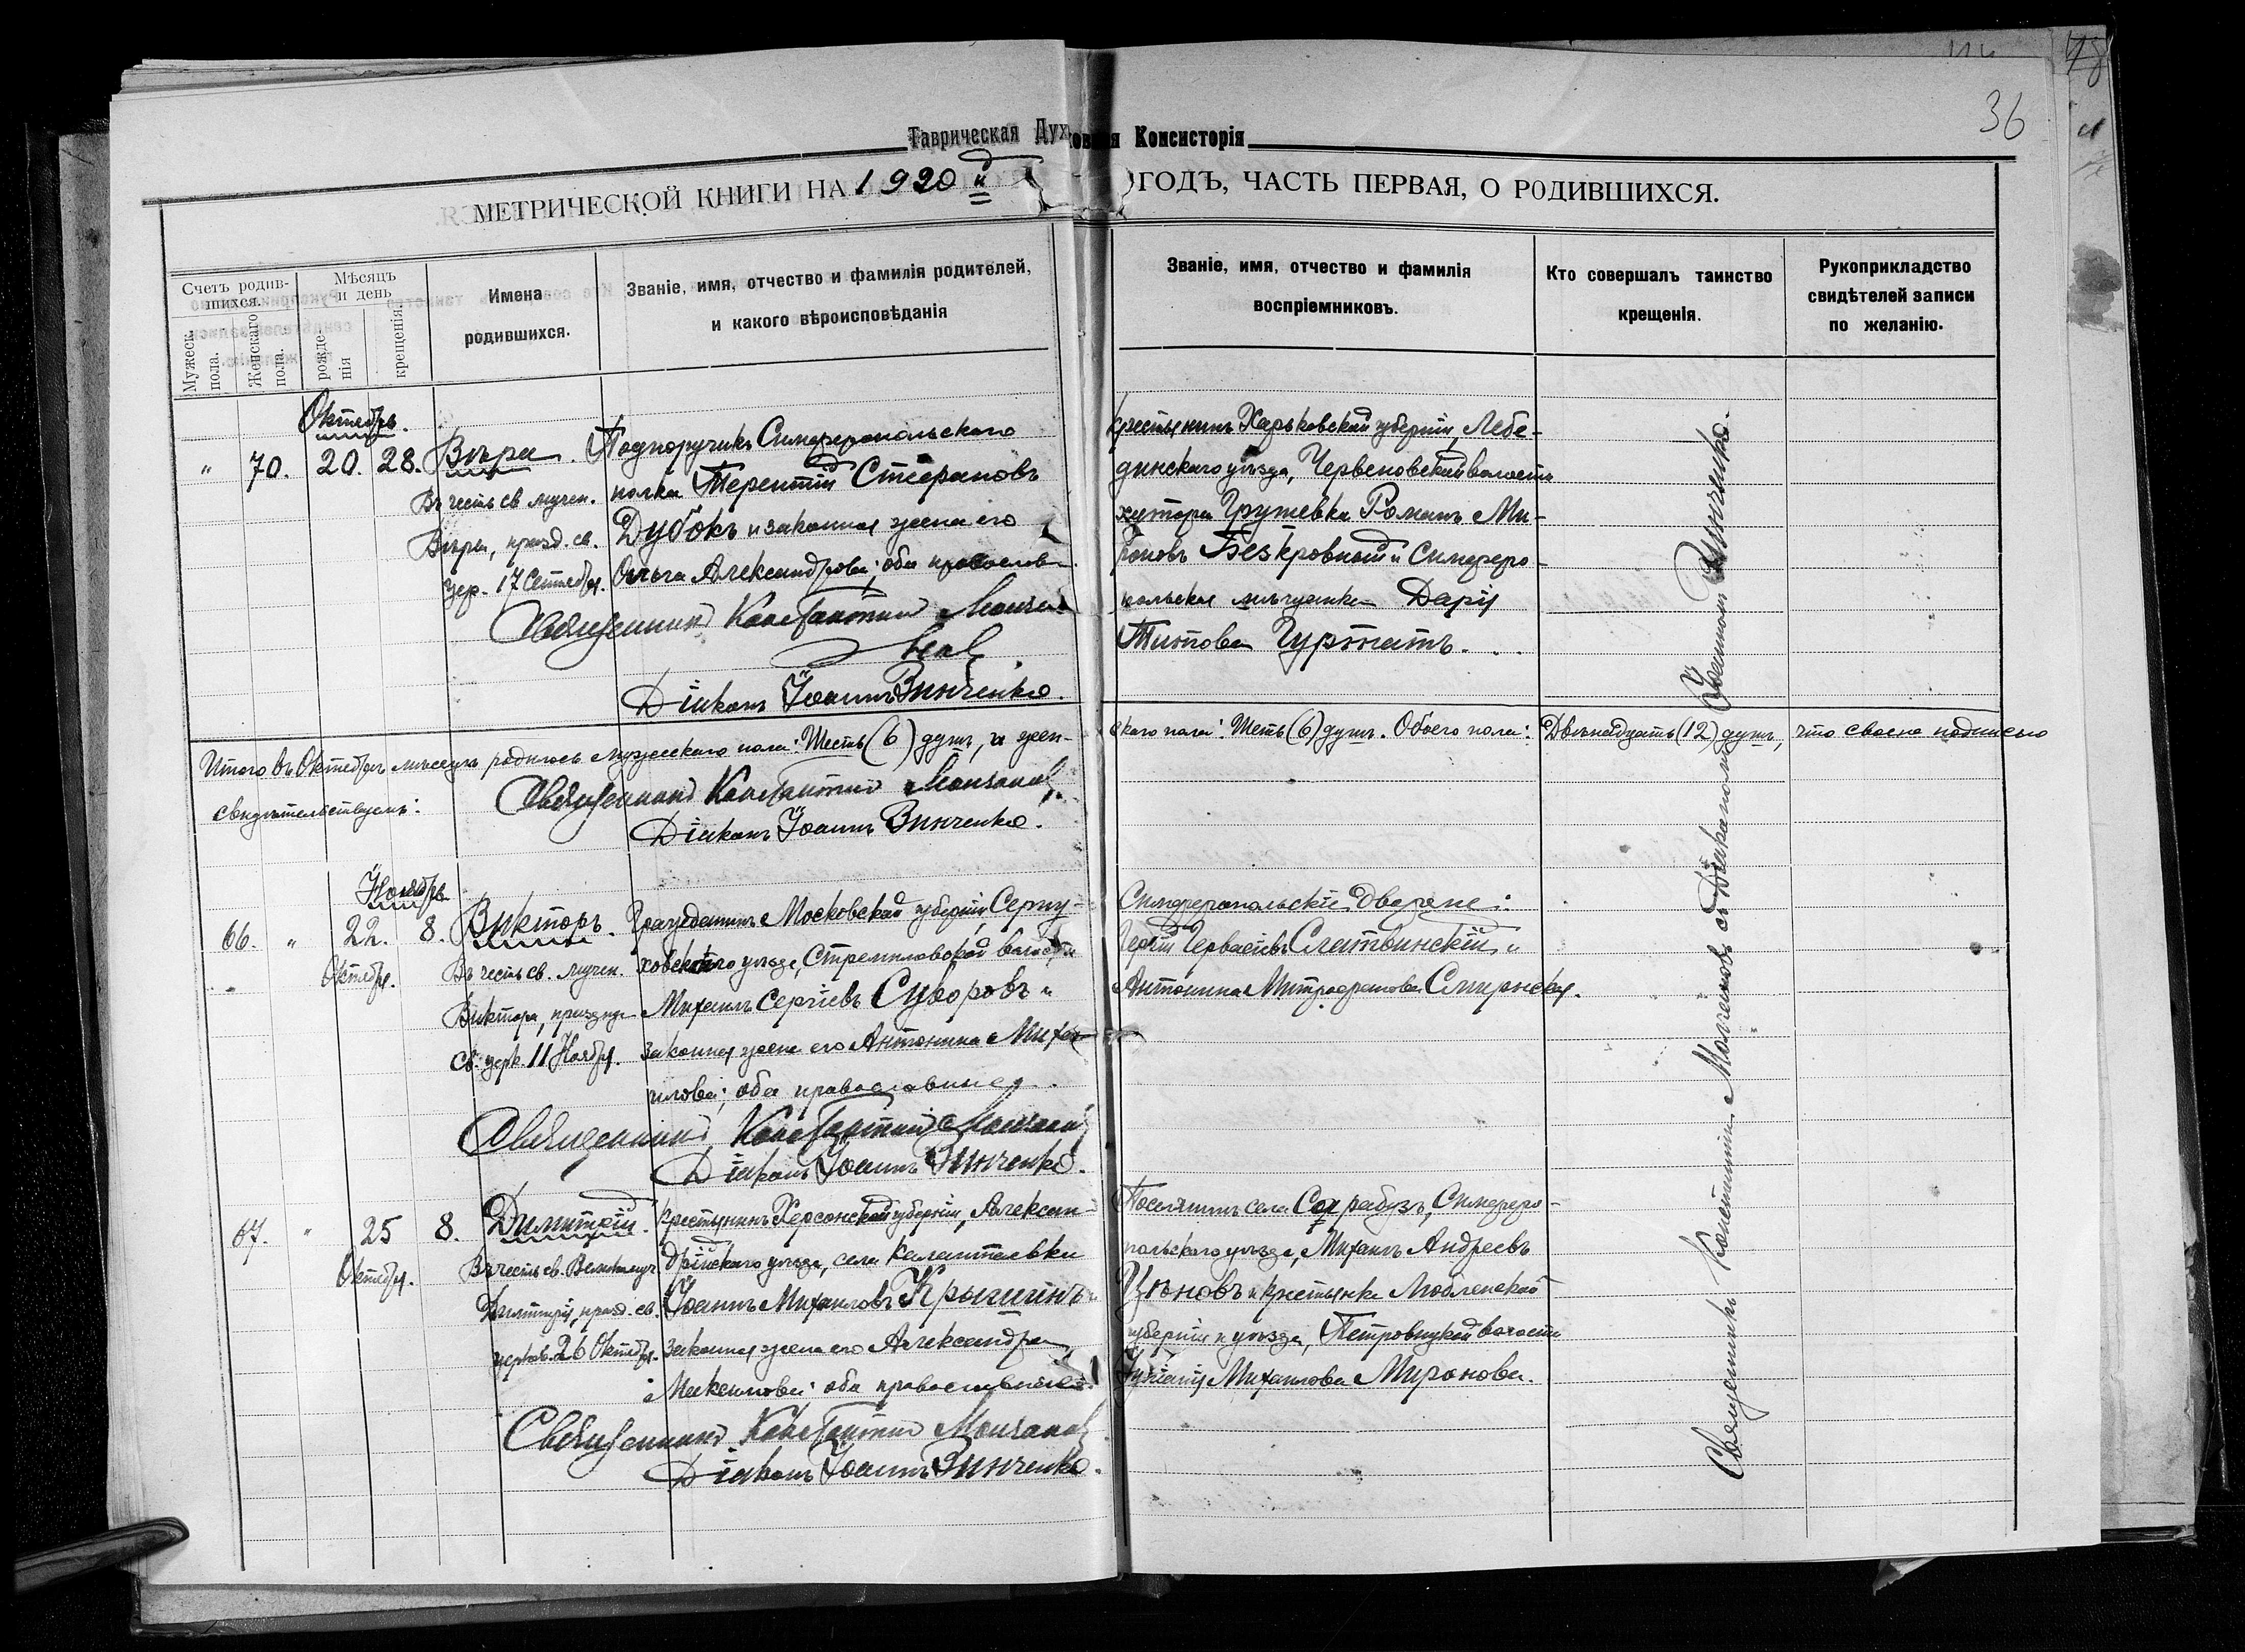 36
Таврическая Духовная Консисторія
МЕТРИЧЕСКОЙ КНИГИ НА 1920й ГОДЪ, ЧАСТЬ ПЕРВАЯ, О РОДИВШИХСЯ.
Счетъ родив-
шихся.
Мужеск. пола.
Женскаго пола.
Мѣсяцъ
и день
рожде-
нія
крещенія.
Имена
родившихся.
Званіе, имя, отчество и фамилія родителей,
и какого вѣроисповѣданія
Званіе, имя, отчество и фамилія
воспріемниковъ.
Кто совершалъ таинство
крещенія.
Рукоприкладство
свидѣтелей записи
по желанію.
Октябрь.
" 70. 20. 28. Вѣра.
Въ честь св. мучен.
Вѣры, празд. св.
цер. 17 Сентября.
Подпоручикъ Симферопольскаго
полка Терентій Стефановъ
Дубокъ и законная жена его
Ольга Александрова; оба православ.
Священникъ Константинъ Молчановъ
Діаконъ Іоаннъ Зинченко.
Крестьянинъ Харьковской губерніи, Лебе-
динскаго уѣзда, Червеновской волости
хутора Грушевка Романъ Ми-
роновъ Безкровный и Симферо-
польская мѣщанка Дарія
Титова Гуртатъ.
Итого въ Октябрѣ мѣсяцѣ родилось мужескаго пола: Шесть (6) душъ, и жен-
скаго пола: Шеть (6) душъ. Обоего пола: Двѣнадцать (12) душъ, что своею подписью
свидѣтельствуемъ:
Священникъ Константинъ Молчановъ
Діаконъ Іоаннъ Зинченко.
Ноябрь
66. " 22. 8. Викторъ.
Октября.
Въ честь св. мучен.
Виктора, празднуе
св. церк. 11 Ноября.
Гражданинъ Московской губерніи, Серпу-
ховского уѣзда, Стремиловской волости
Михаилъ Сергіевъ Суворовъ и
законная жена его Антонина Михаи-
лова; оба православные.
Священникъ Константинъ Молчановъ
Діаконъ Іоаннъ Зинченко.
Симферопольскіе дворяне:
Гервасіевъ Слатвинскій и
Антонина Митрофанова Смирнская.
67. " 25 8. Димитрій.
Октября.
Въ честь св. Великомуч
Димитрія, празд. св.
церков. 26 Октября.
Крестьянинъ Херсонской губерніи, Алексан-
дрійскаго уѣзда, села Калантаевки
Іоаннъ Михаиловъ Крыгинъ и
законная жена его Александра
Максимова; оба православные.
Священникъ Константинъ Молчановъ
Діаконъ Іоаннъ Зинченко.
Поселянинъ села Сарабузъ, Симферо-
польскаго уѣзда, Михаилъ Андреевъ
Цоновъ и крестьянка Могилевской
губерніи и уѣзда, Петровицкой волости
Михаилова Миронова.
Священникъ Константинъ Молчановъ съ Діакономъ Іоанномъ Зинченко.